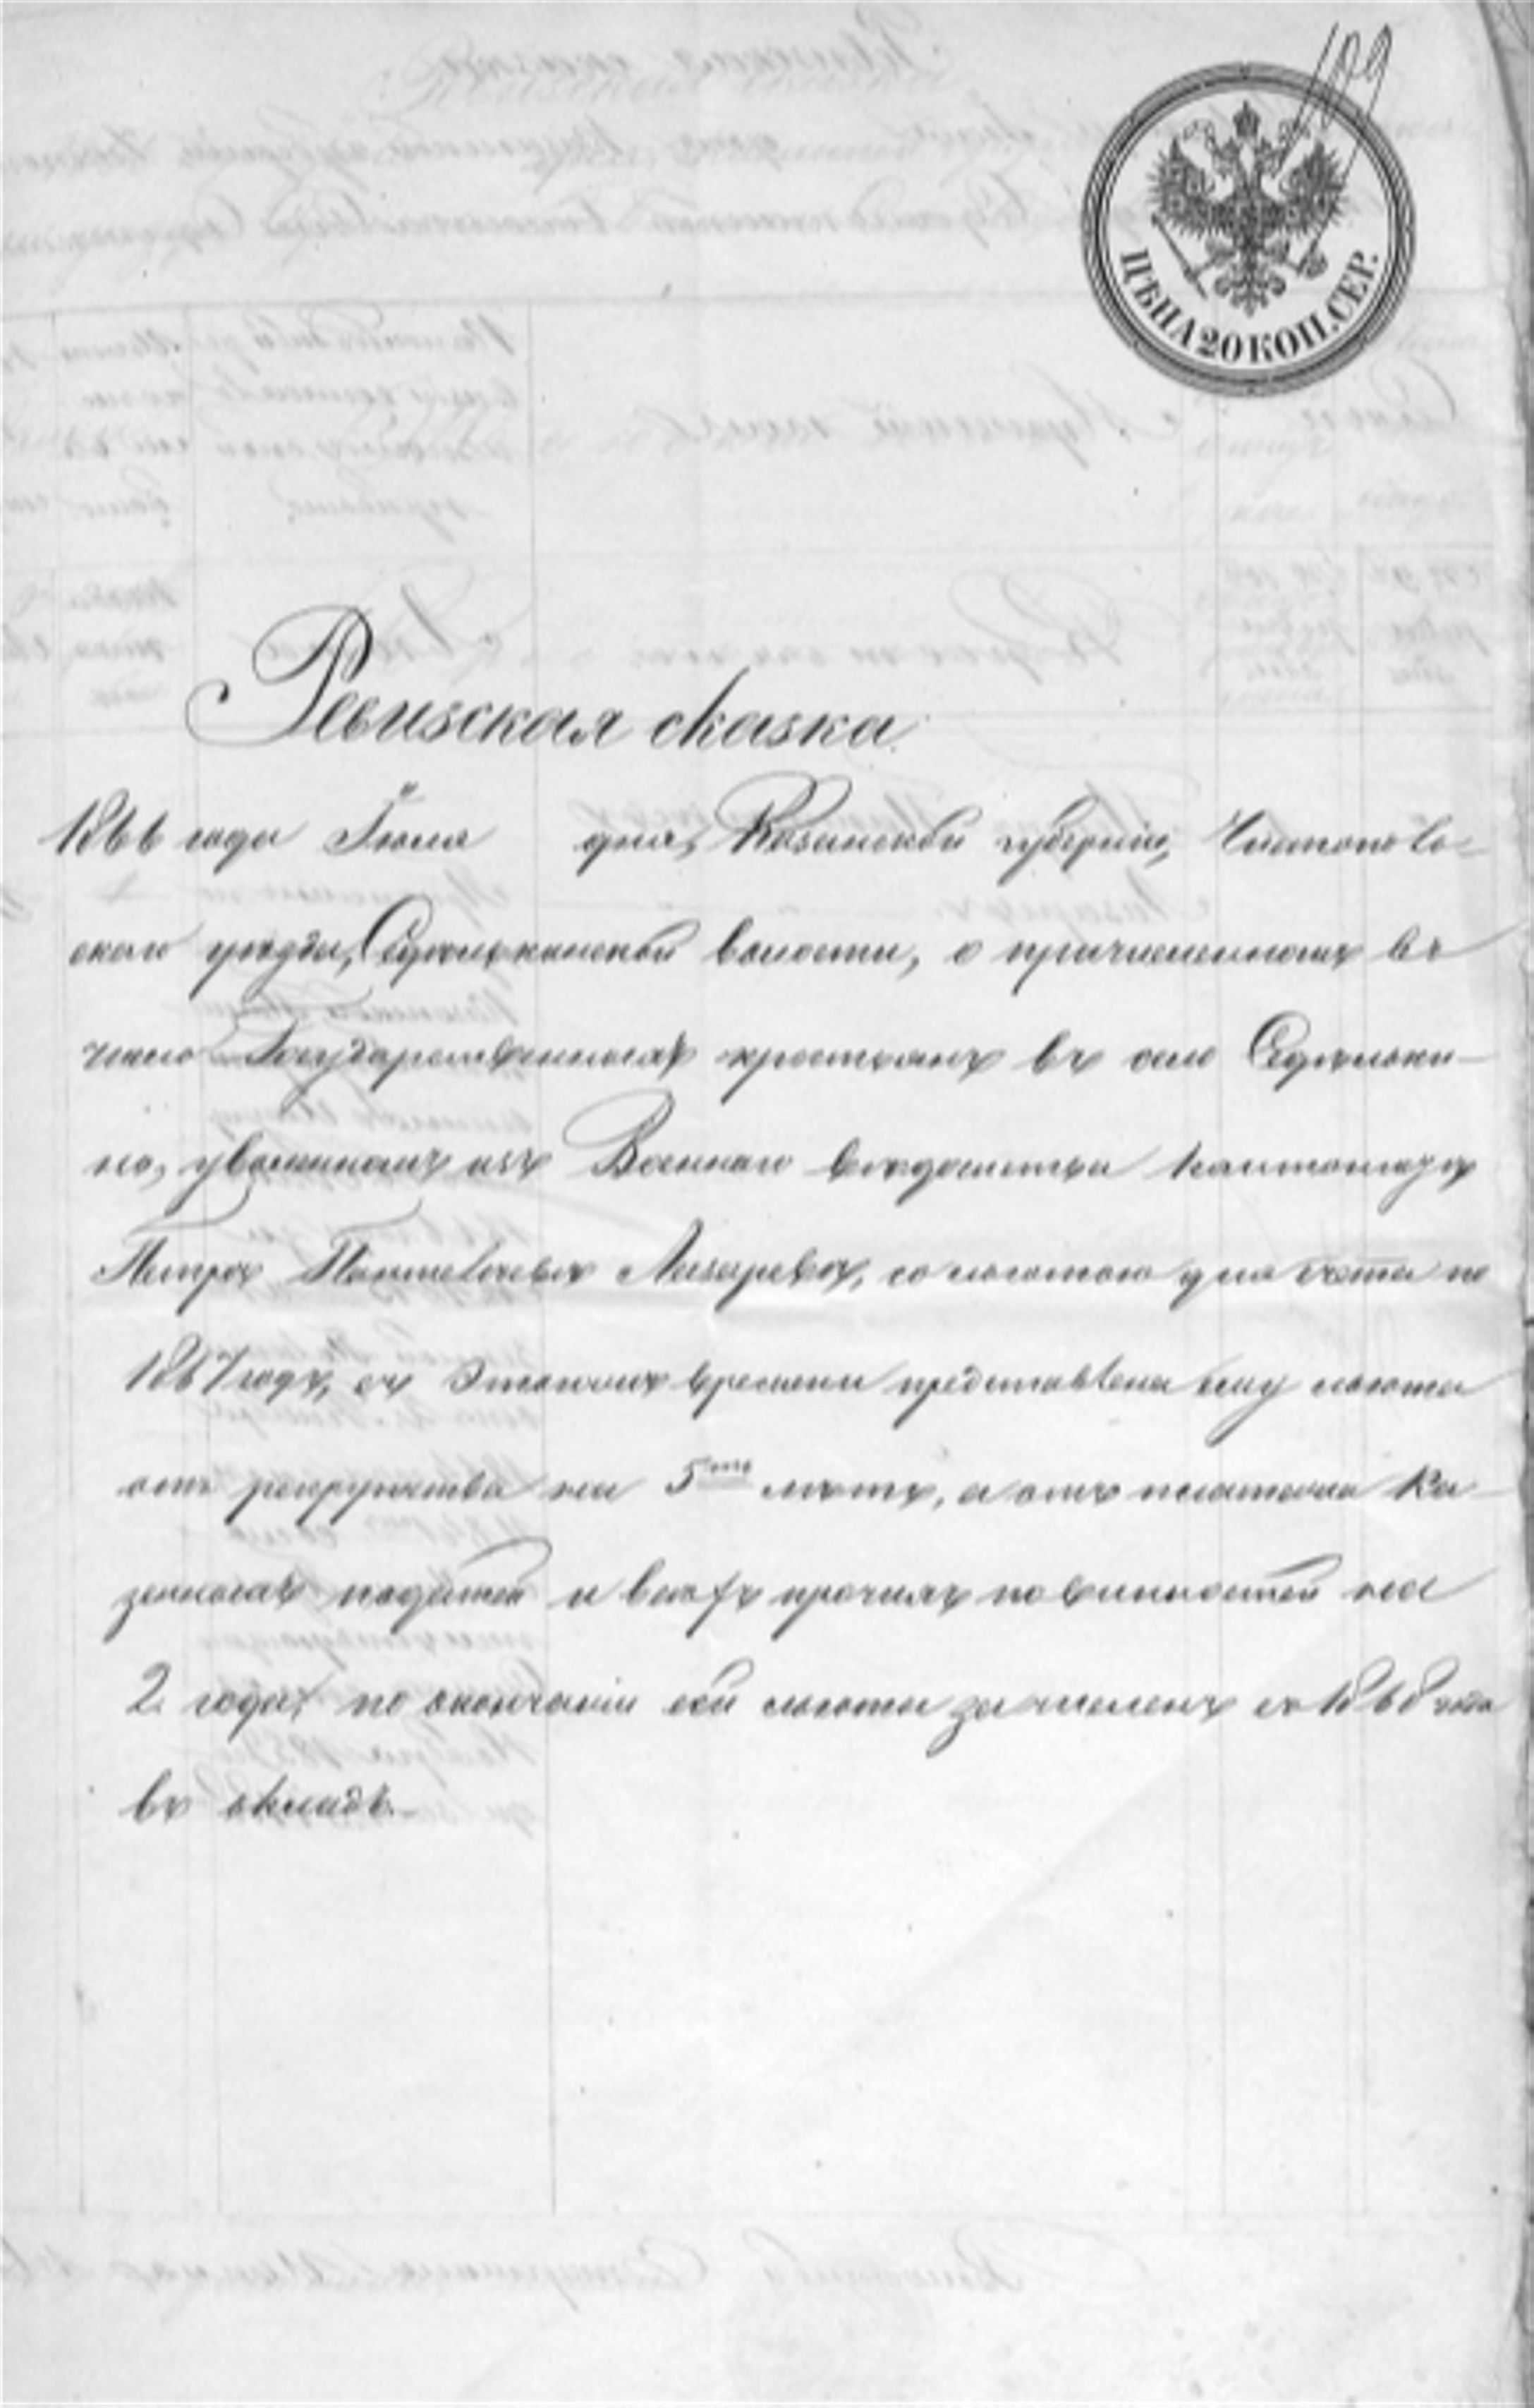 109
ЦѢНА 20 КОП. СЕР.
Ревизская сказка
1866 года Іюля дня, Казанской губерніи, Чистополь-
скаго уѣзда, волости, о причисленномъ въ
число Государственныхъ крестьянъ въ село
но, уволенномъ изъ Военнаго вѣдомства кантонистѣ
Петрѣ Лазаревѣ, со льготою для по
1867 годъ, съ времени предоставлена ему льгота
отъ рекрутства на 5ть лѣтъ, а отъ платежа Ка-
зенныхъ податей и всѣхъ прочихъ повинностей на
2 года, по окончаніи сей льготы зачисленъ съ 1868 года
въ окладъ.